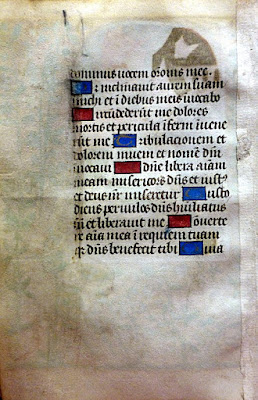 dominus uocem orōnis mee.
Q inclinauit aurem suam
michi et ī diebus meis īuocabo
Circūdederūt me dolores
mortis et pericula īferni īuene
rūt me Tribulacionem et
dolorem inueni et nomē dn̄i
inuocaui O dn̄e libera aīam
meam misericors dn̄s et iustꝰ
et deus nr̄ miseretur Custo
diens paruulos dn̄s humiliatus
sū et liberauit me Conuerte
re aīa mea ī requiem tuam
q̄ dn̄s benefecit tibi Quia